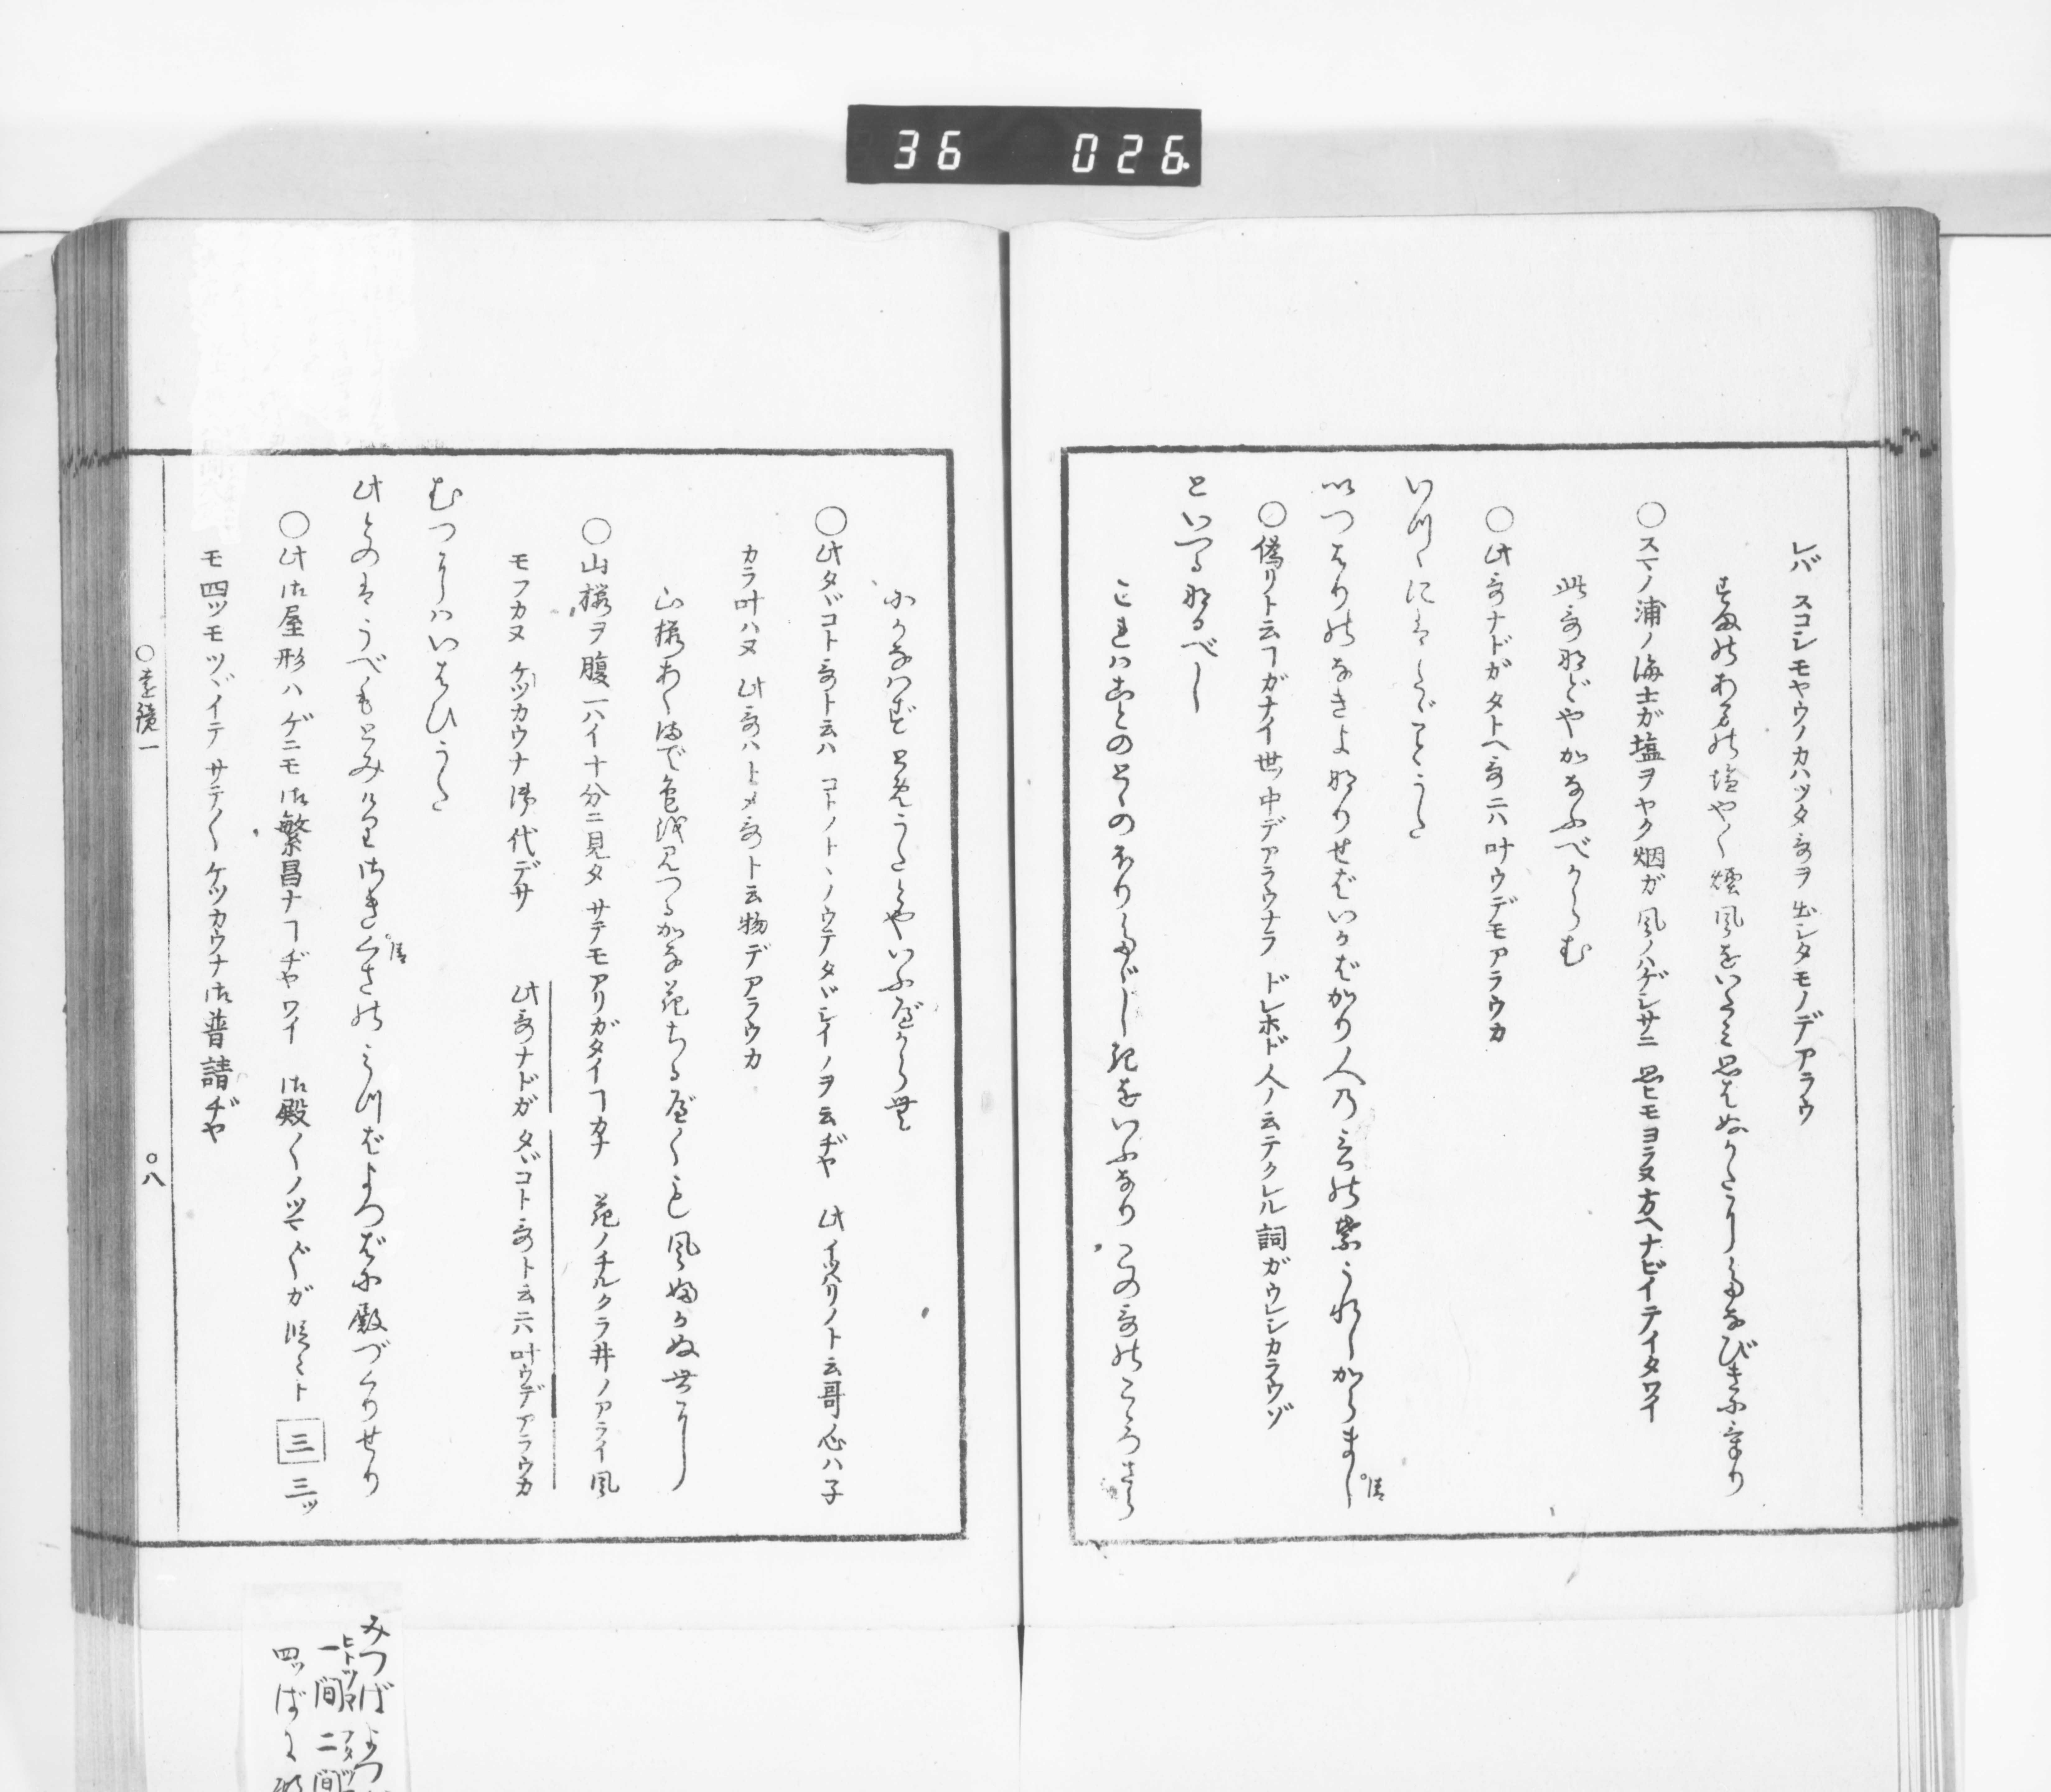 36 026
レバ スコシモヤウノカハツタ哥ヲ出シタモノデアラウ
すまのあまの塩やく煙風をいたみ思はぬかたにたなびきにけり
○スマノ浦ノ海士ガ塩ヲヤク烟ガ 風ノハゲシサニ 思ヒモヨラヌ方ヘナビイテイタワイ
此哥などやかなふべからむ
○此哥ナドガタトヘ哥ニハ叶ウデモアラウカ
いつゝにはたゞことうた
いつはりのなきよなりせばいかばかり人の言の葉うれしからまし
○偽リト云フヿガナイ世ノ中デアラウナラ ドレホド人ノ云テクレル詞ガウレシカラウゾ
といへるなるべし
これはことのとゝのほりたゞしきをいふなり この哥のこゝろさら
にかなはずとめうたとやいふべからむ
○此タヾコト哥ト云ハ コトノトヽノウテタヾシイノヲ云ヂヤ 此イツハリノト云哥ノ心ハ子
カラ叶ハヌ 此哥ハトメ哥ト云物デアラウカ
山桜あくまで色を見つるかな花ちるべくも風ふかぬ世に
○山桜ヲ腹一ハイ十分ニ見タ サテモアリガタイヿカナ 花ノチルクラ井ノアライ風
モフカヌ ケツカウナ御代デサ 此哥ナドガタヾコト哥ト云ニハ叶ウデアラウカ
むつにはいはひうた
此とのはうべもとみけりさき草のみつばよつばに殿づくりせり
○此御屋形ハ ゲニモ御繁昌ナヿヂヤワイ 御殿〳〵ノツマ〴〵ガ 段々ト 三 三ツ
モ四ツモツヾイテ サテ〳〵ケツカウナ御普請ヂヤ
○遠鏡一 ○八
みつばよつ
一間二間
四ッばに